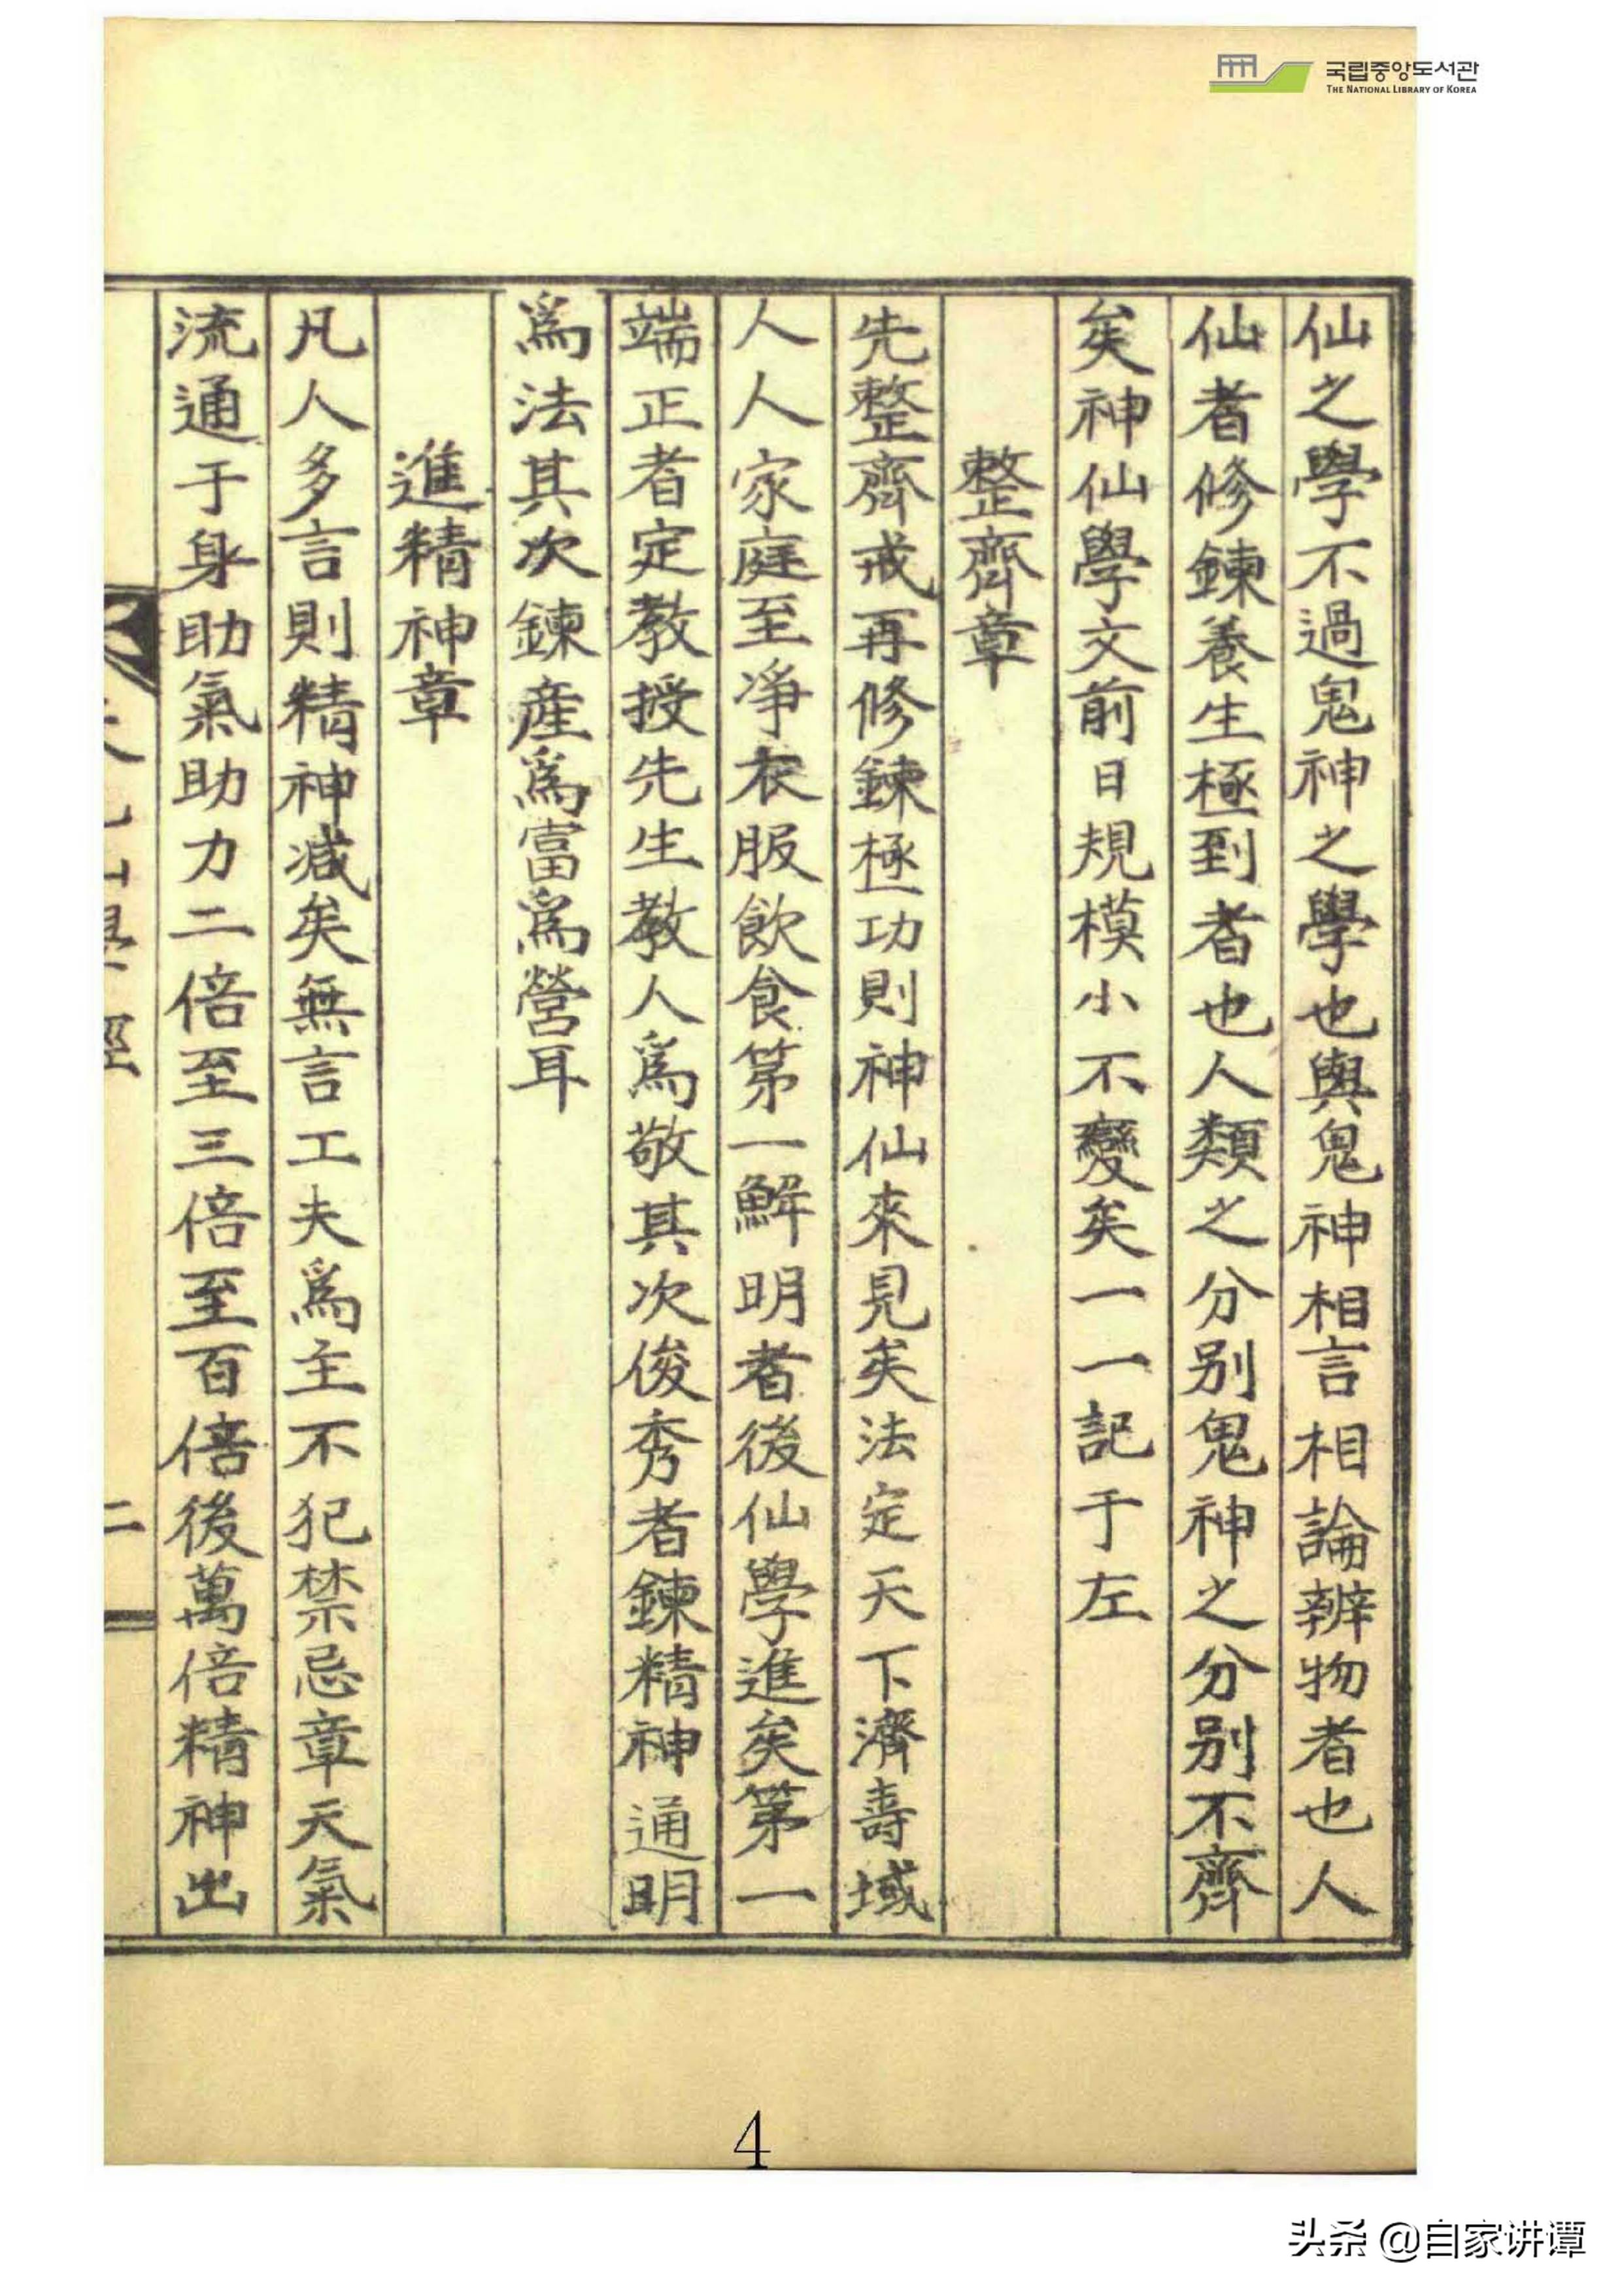 국립중앙도서관
THE NATIONAL LIBRARY OF KOREA
仙之學不過鬼神之學也與鬼神相言相論辨物者也人
仙者修鍊養生極到者也人類之分別鬼神之分別不齊
矣神仙學文前日規模小不變矣一一記于左
整齊章
先整齊戒再修鍊極功則神仙來見矣法定天下濟壽域
人人家庭至淨衣服飲食第一解明者後仙學進矣第一
端正者定教授先生教人爲敬其次俊秀者鍊精神通明
爲法其次鍊産爲富爲營耳
進精神章
凡人多言則精神减矣無言工夫爲主不犯禁忌章天氣
流通于身助氣助力二倍至三倍至百倍後萬倍精神出
二
4
头条 @自家讲谭